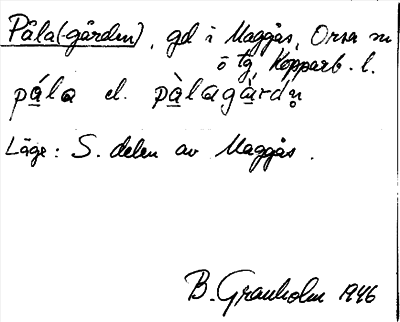 Påla(-gården), gd i Maggås, Orsa sn
ö tg, Kopparb. l.
pá̱la̱ el. pà̱la̱gà̱rdn̥
Läge: S. delen av Maggås.
B. Granholm 1946